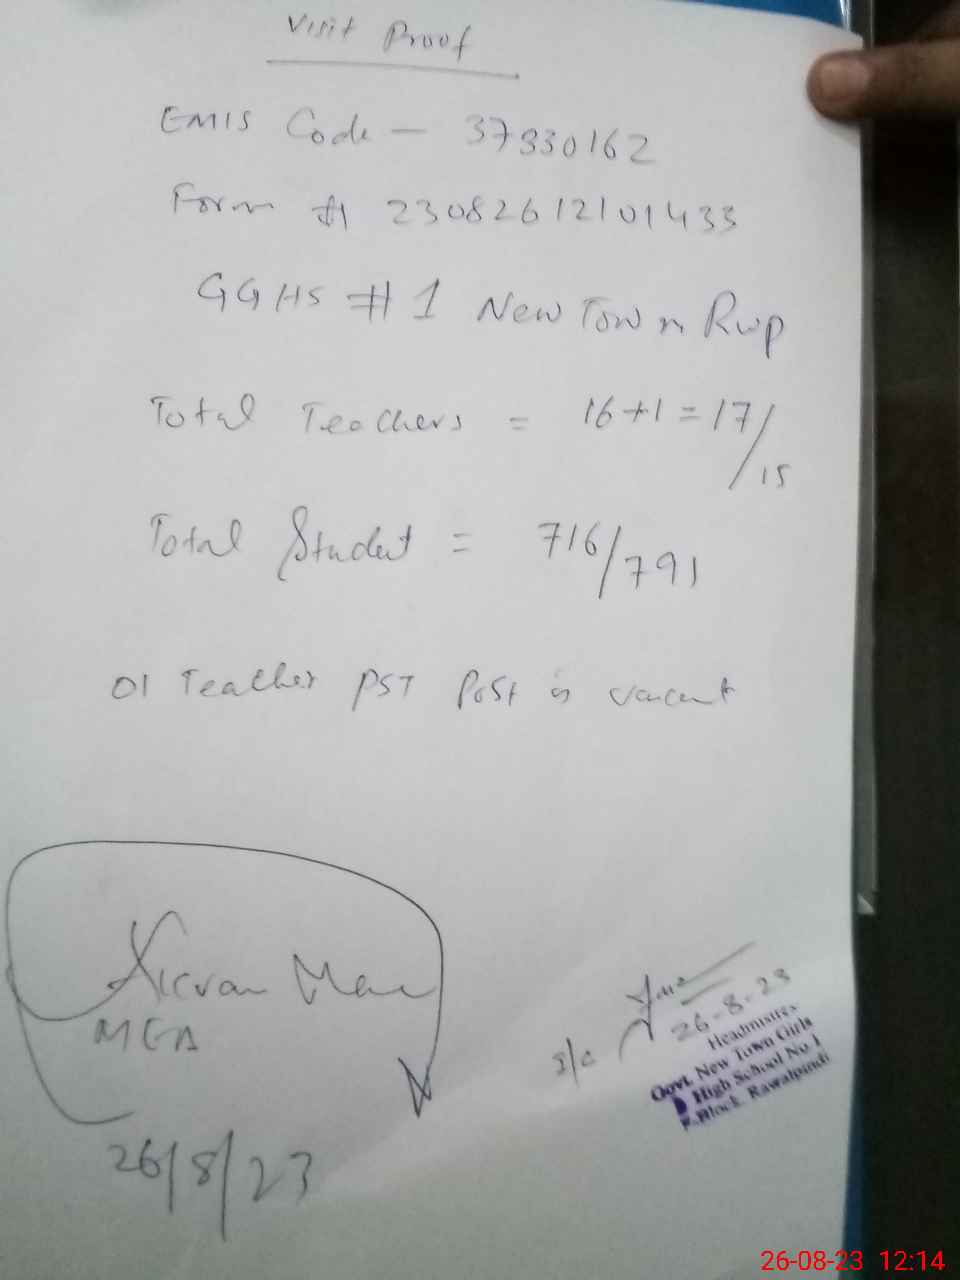 Visit Proof
EMIS Code — 37330162
Form # 23082612101433
GGHS # 1 New Town Rwp
Total Teachers = 16+1=17/15
Total Student = 716/791
01 Teacher PST Post is vacant
MEA
26/8/23
26-8-23
Headmistress
Govt. New Town Girls
High School No.1
F-Block, Rawalpindi
26-08-23 12:14